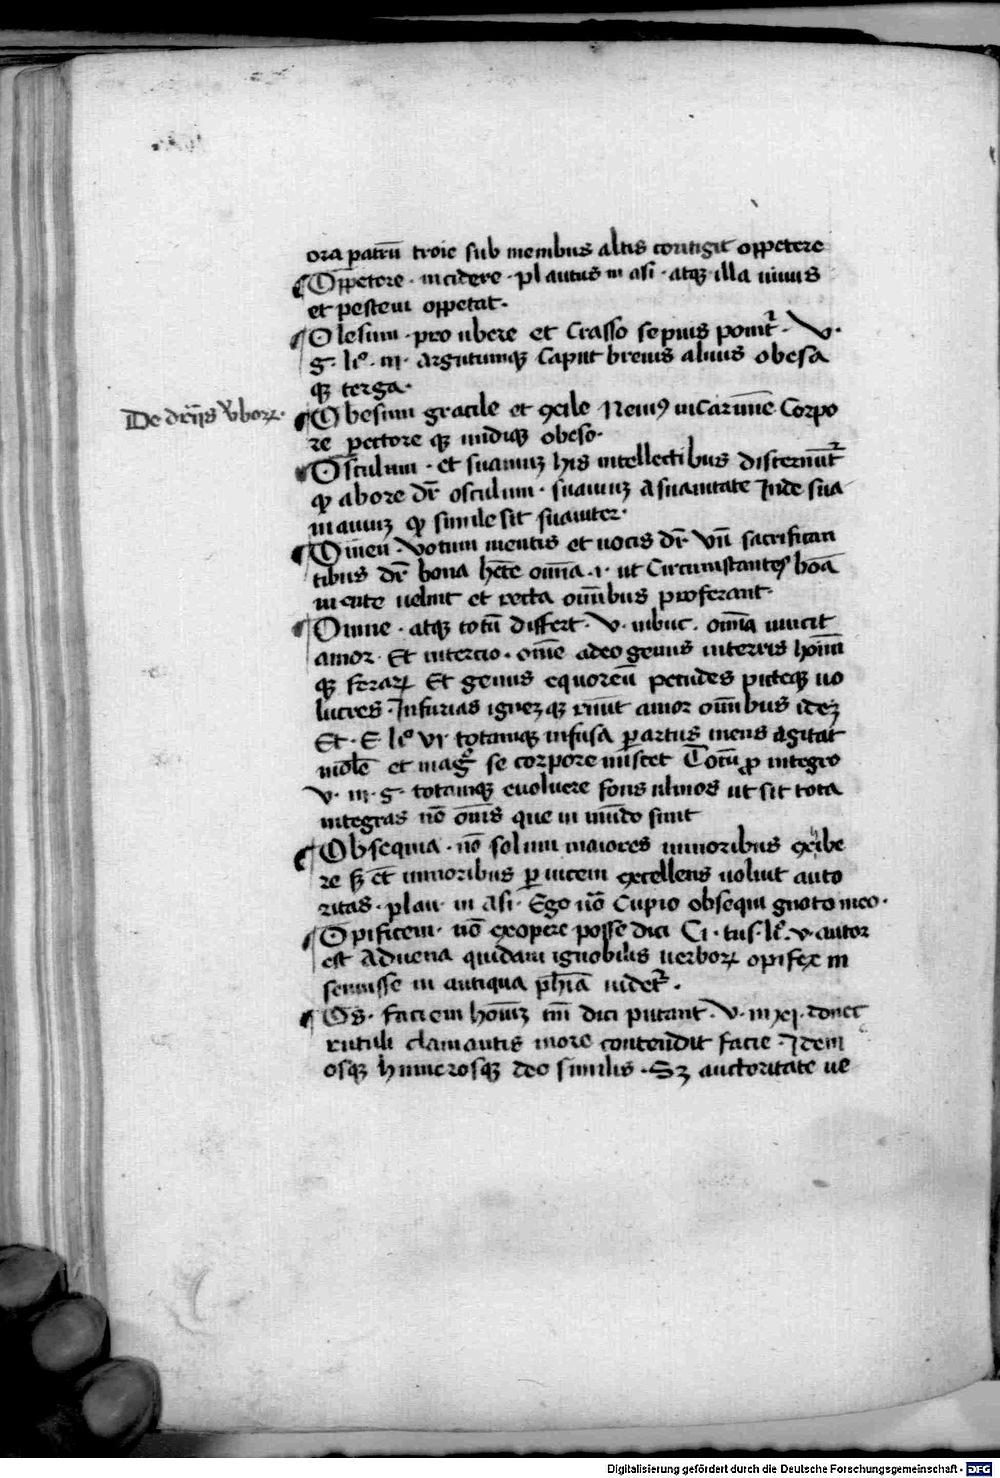 ora patrū troie sub menibus altis contigit oppetere
Oppetere · incidere · plautus in asi · atqꝫ illa uiuus
et pestem oppetat ·
Olesum · pro ubere et Crasso sepius ponit᷑ · V ·
g · lꝰ · iij · Argutumqꝫ Caput breuis aluus obesa
qꝫ terga ·
De dr̄iis v̄boꝝ ·
Obesum gracile et exile Neuiꝰ in Carmīe Corpo
re pectore qꝫ undiqꝫ obeso ·
Osculum · et suauiuꝫ his intellectibus discernūt᷑
ꝙ abore dr̄ osculum · suauiuꝫ a suauitate Inde sua
uiauiuꝫ ꝙ simile sit suauiter ·
Omen · Votum mentis et uocis dr̄ vn̄ sacrifican
tibus dr̄ bona hēte omīa · i · ut Circumstantes bōa
mente uelint et recta omībus proferant ·
Omne · atqꝫ totū differt · V · inbuc · omīa uincit
amor · Et intercio · om̄e adeo genus interris homī
qꝫ feraꝝ Et genus equoreū pecudes picteqꝫ uo
lucres · Infurias igneꝫ qꝫ ruūt amor omībus ideꝫ
Et · E · lꝰ vi totamqꝫ infusa ꝑ artus mens agitat
molē et mag̊ se corpore miscet Totū ꝓ integro
v · iij · g · totamqꝫ euoluere fons ulmos ut sit tota
integras nō om̄s que in mūdo sunt
Obsequia · nō solum maiores minoribus exibe
re sꝫ et minoribus ꝑ uicem excellens uoluit auto
ritas · plau · in Asi · Ego uō Cupio obsequi gnato meo ·
Opificem · nō exopere posse dici Ci · tus · lꝰ · v · autor
est Aduena quidam ignobilis uerboꝝ opifex in
semuisse in antiqua phīa uidet᷑ ·
Os · faciem homīꝫ tm̄ dici putant · V · in xi · donec
rutuli clamantis more contendit facie · Idem
osqꝫ humerosqꝫ deo similis · Sꝫ auctoritate ue
Digitalisierung gefördert durch die Deutsche Forschungsgemeinschaft - DFG